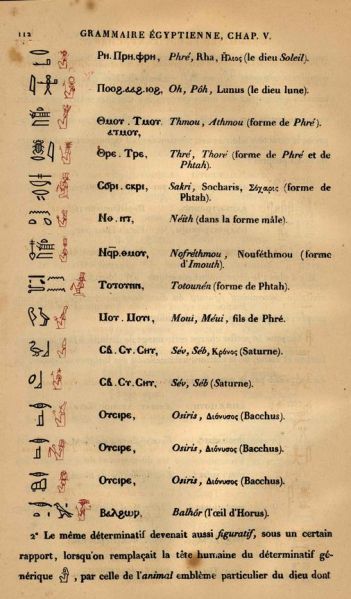 112 GRAMMAIRE ÉGYPTIENNE, CHAP. V.
Ⲣⲏ. Ⲡⲣⲏ. ⲫⲣⲏ, Phré, Rha, Ηλιος (le dieu Soleil).
Oh, Pôh, Lunus (le dieu lune).
Ⲑⲙⲟⲩ . Ⲧⲙⲟⲩ . Thmou, Athmou (forme de Phré).
ⲁⲧⲙⲟⲩ,
Ⲑⲣⲉ . Ⲧⲣⲉ, Thré, Thoré (forme de Phré et de
Phtah).
ⲥⲕⲣⲓ, Sakri, Socharis, Σόχαρις (forme de
Phtah).
Ⲛⲑ . ⲛⲧ, Néith (dans la forme mâle).
ⲑⲙⲟⲩ, Nofréthmou, Nouféthmou (forme
d'Imouth).
Ⲧⲟⲧⲟⲩⲛⲛ, Totounén (forme de Phtah).
Ⲙⲟⲩ . Ⲙⲟⲩⲓ, Moui, Méui, fils de Phré.
Ⲥⲃ. Ⲥⲩ. Ⲥⲏⲩ, Sév, Séb, Κρόνος (Saturne).
Ⲥⲃ. Ⲥⲩ. Ⲥⲏⲩ, Sév, Séb (Saturne).
Ⲟⲩⲥⲓⲣⲉ, Osiris, Διόνυσος (Bacchus).
Ⲟⲩⲥⲓⲣⲉ, Osiris, Διόνυσος (Bacchus).
Ⲟⲩⲥⲓⲣⲉ, Osiris, Διόνυσος (Bacchus).
Ⲃⲁⲗϩⲱⲣ, Balhôr (l'œil d'Horus).
2° Le même déterminatif devenait aussi figuratif, sous un certain
rapport, lorsqu'on remplaçait la tête humaine du déterminatif gé-
nérique , par celle de l'animal emblème particulier du dieu dont